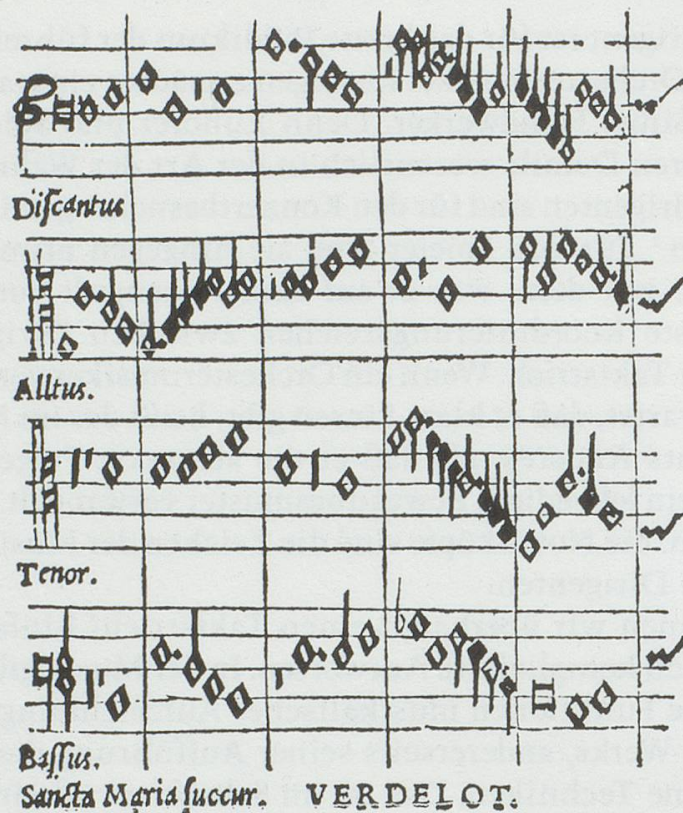 Discantus
Altus.
Tenor.
Bassus.
Sancta Maria succur. VERDELOT.